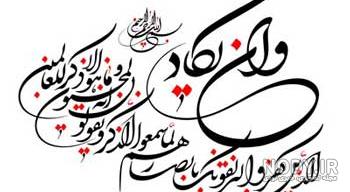 بسم الله الرحمن الرحیم
وان یکاد
الذین کفروا لیزلقونک بابصارهم
لما سمعوا الذکر و یقولون
انه لمجنون
و ما هو الا ذکر للعالمین
NOPY.IR